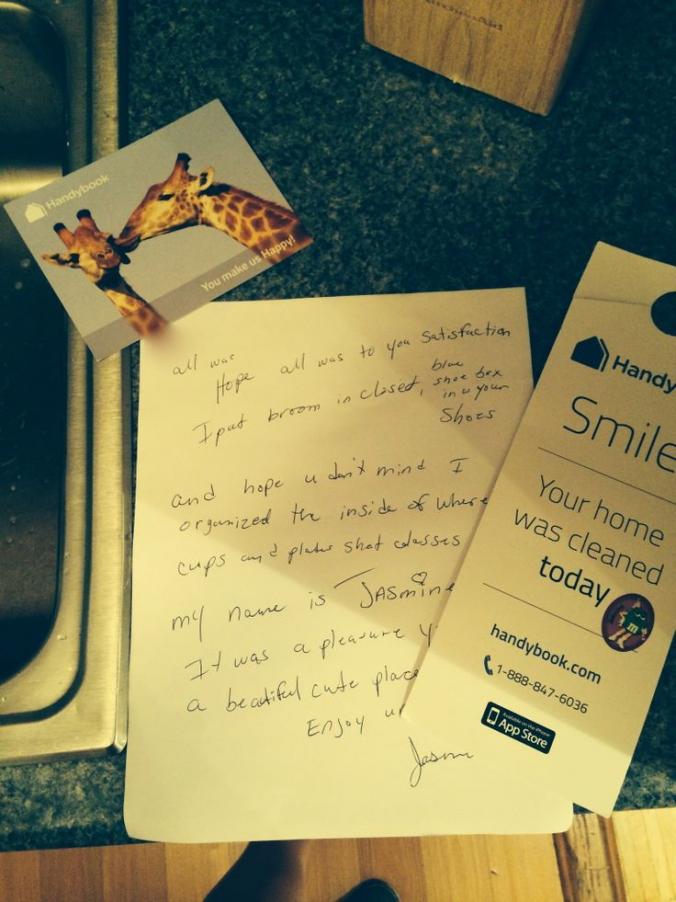 Handybook
You make us Happy!
all was
Hope all was to you satisfaction
I put broom in closet, blue
shoe box
in w your
Shoes
and hope u don't mind I
organized the inside of where
cups and plates shot glasses
my name is JASmine
It was a pleasure y
a beatiful cute place
Enjoy
Handy
Smile
Your home
was cleaned
today
m
handybook.com
1-888-847-6036
Available on the iPhone
App Store